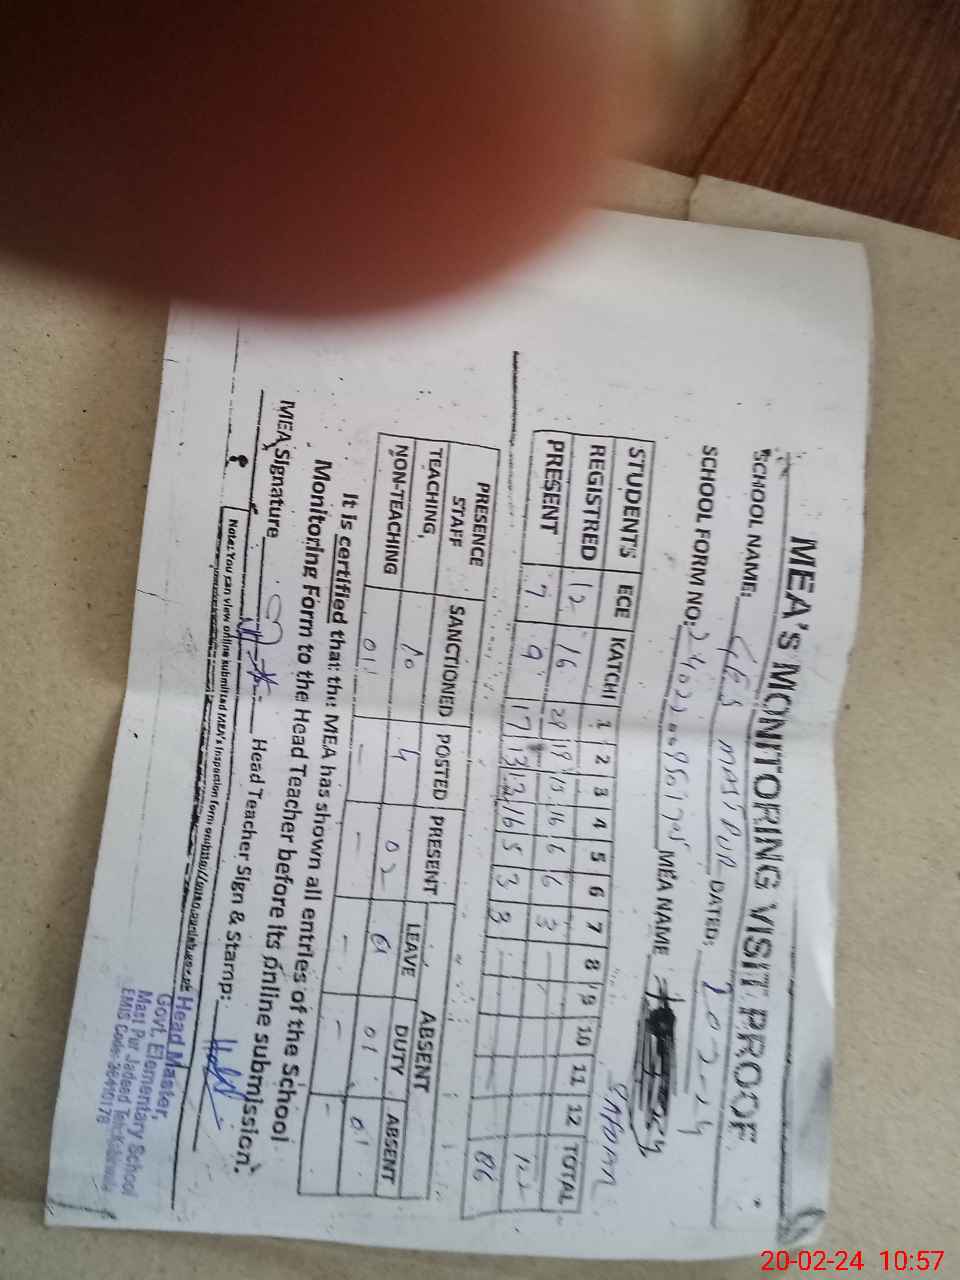 MEA'S MONITORING VISIT PROOF
SCHOOL NAME: GES MASTPUR DATED: 20-2-24
SCHOOL FORM NO: MEA NAME
STUDENTS ECE KATCHI 1 2 3 4 5 6 7 8 9 10 11 12 TOTAL
REGISTRED 12 16 20 18 15 16 6 6 3 -
PRESENT 7 9 17 13 12 16 5 3 3 86
PRESENCE STAFF SANCTIONED POSTED PRESENT ABSENT
LEAVE DUTY ABSENT
TEACHING, 10 4 02 01 01 01
NON-TEACHING 01 - - - - -
It is certified that the MEA has shown all entries of the School
Monitoring Form to the Head Teacher before its online submission.
MEA Signature Head Teacher Sign & Stamp:
Head Master,
Govt. Elementary School
Mast Pur Jadeed
EMIS Code:
Note: You can view online submitted MEA's inspection form on
20-02-24 10:57